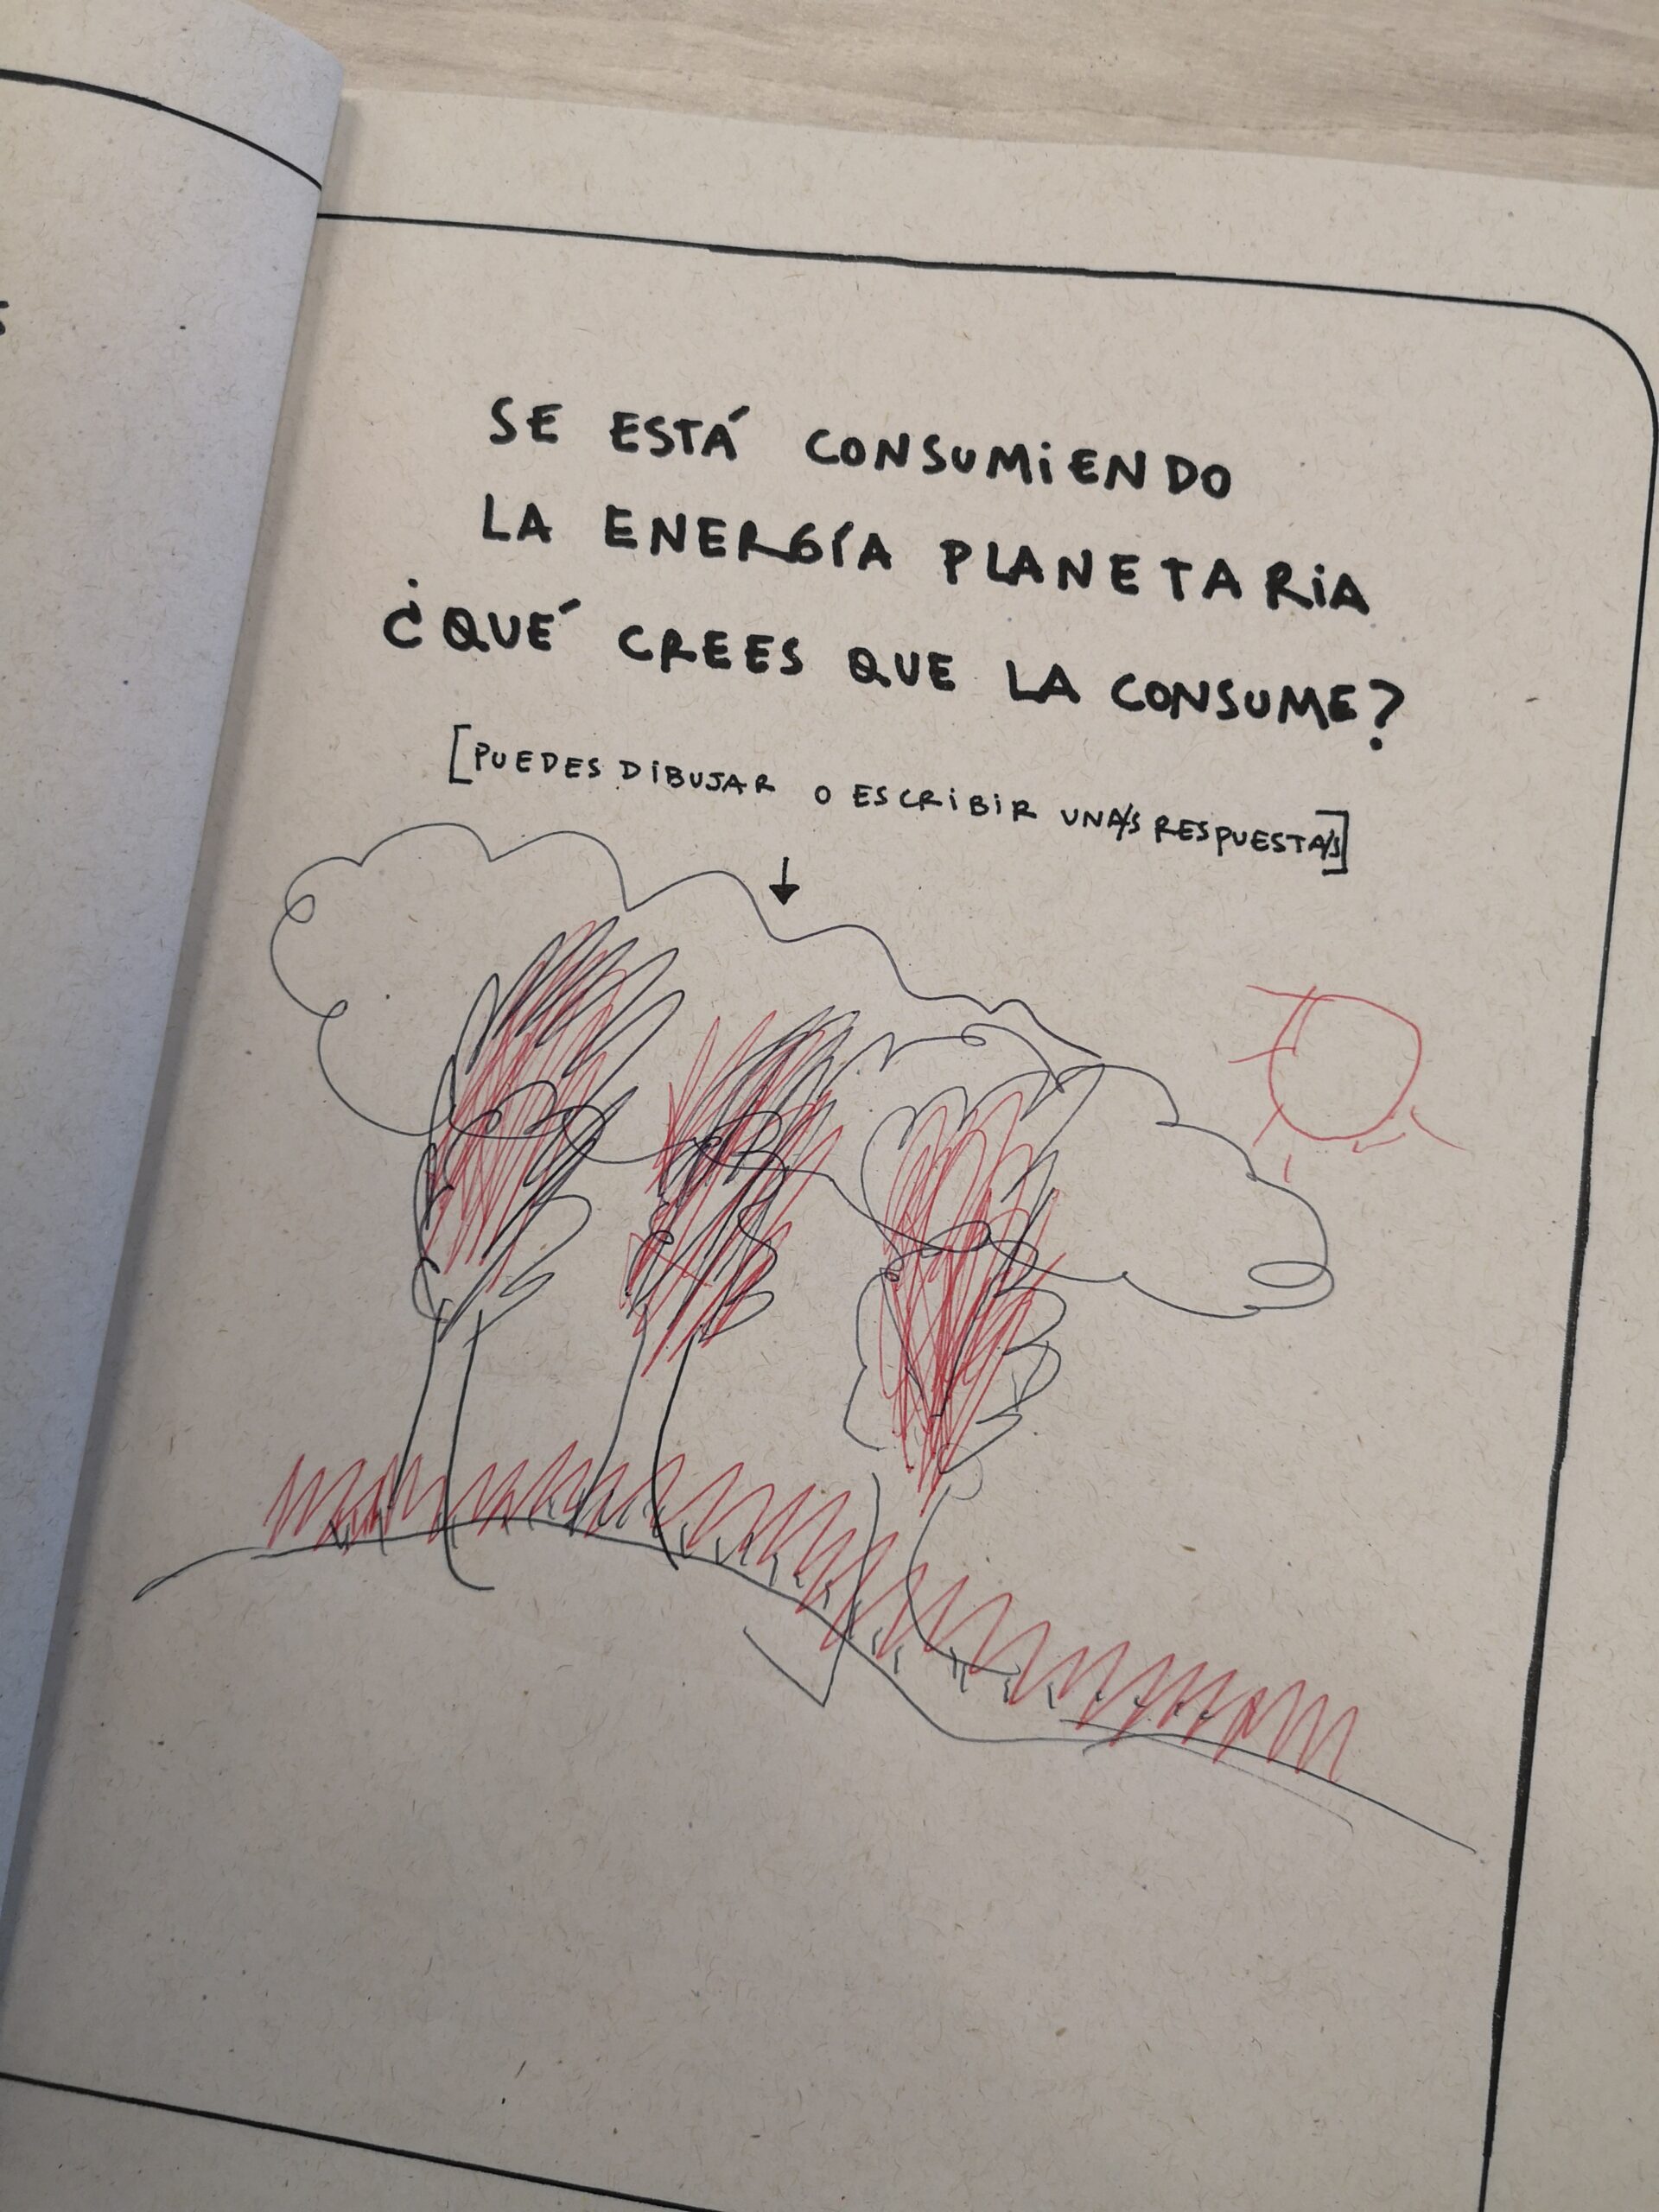 SE ESTÁ CONSUMIENDO
LA ENERGÍA PLANETARIA
¿QUÉ CREES QUE LA CONSUME?
[PUEDES DIBUJAR O ESCRIBIR UNA/S RESPUESTA/S]